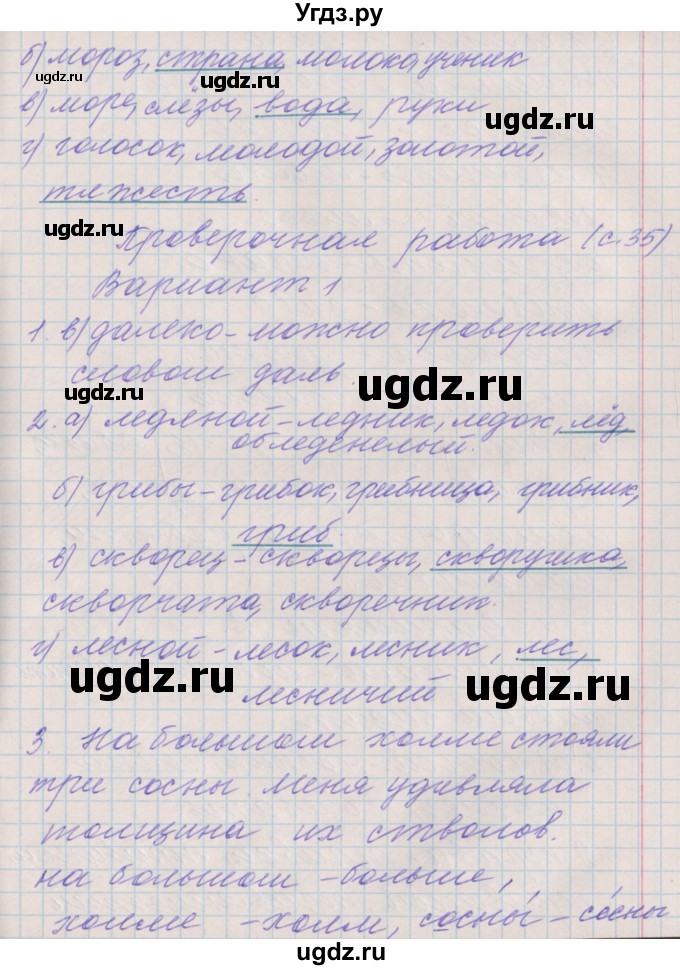 Угдз.ру
б) мороз, страна, молоко, ученик
в) море, слёзы, вода, руки
ugdz.ru
г) голосок, молодой, золотой,
ugdz.ru
тяжесть.
ugdz.ru
Проверочная работа (с.35)
Вариант 1
1. в) далеко - можно проверить
словом даль.
ugdz.ru
ugdz.ru
2. а) ледяной - ледник, ледок, лёд,
обледенелый.
ugdz.ru
б) грибы - грибок, грибница, грибник,
гриб.
в) скворец - скворцы, скворушка,
скворчата, скворечник.
г) лесной - лесок, лесник, лес,
лесничий
ugdz.ru
ugdz.ru
3. На большом холме стояли
три сосны. Меня удивляла
толщина их стволов.
на большом - больше,
холме - холм, сосны - сосны
ugdz.ru
ugdz.ru